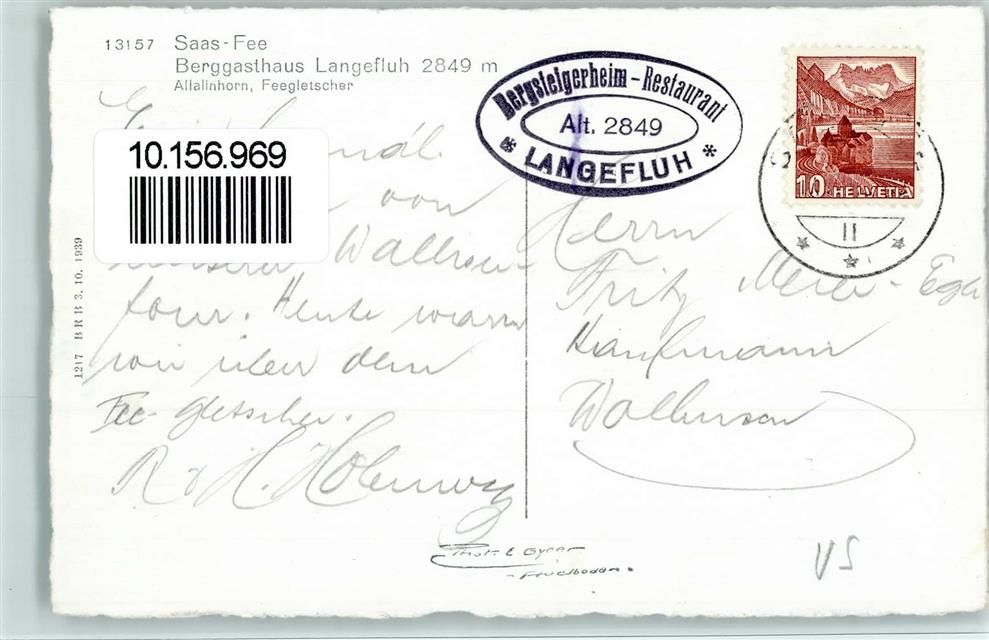 13157 Saas-Fee
Berggasthaus Langefluh 2849 m
Allalinhorn, Feegletscher
Bergsteigerheim - Restaurant
Alt. 2849
* LANGEFLUH *
10 HELVETIA
II
10.156.969
1217 BRB 3. 10. 1939
von
tour. Heute waren
wir über dem
Fee-gletscher.
R u H.
Herrn
Fritz Meier - Egli
Kaufmann
Phot. E. Gyger
Adelboden
VS